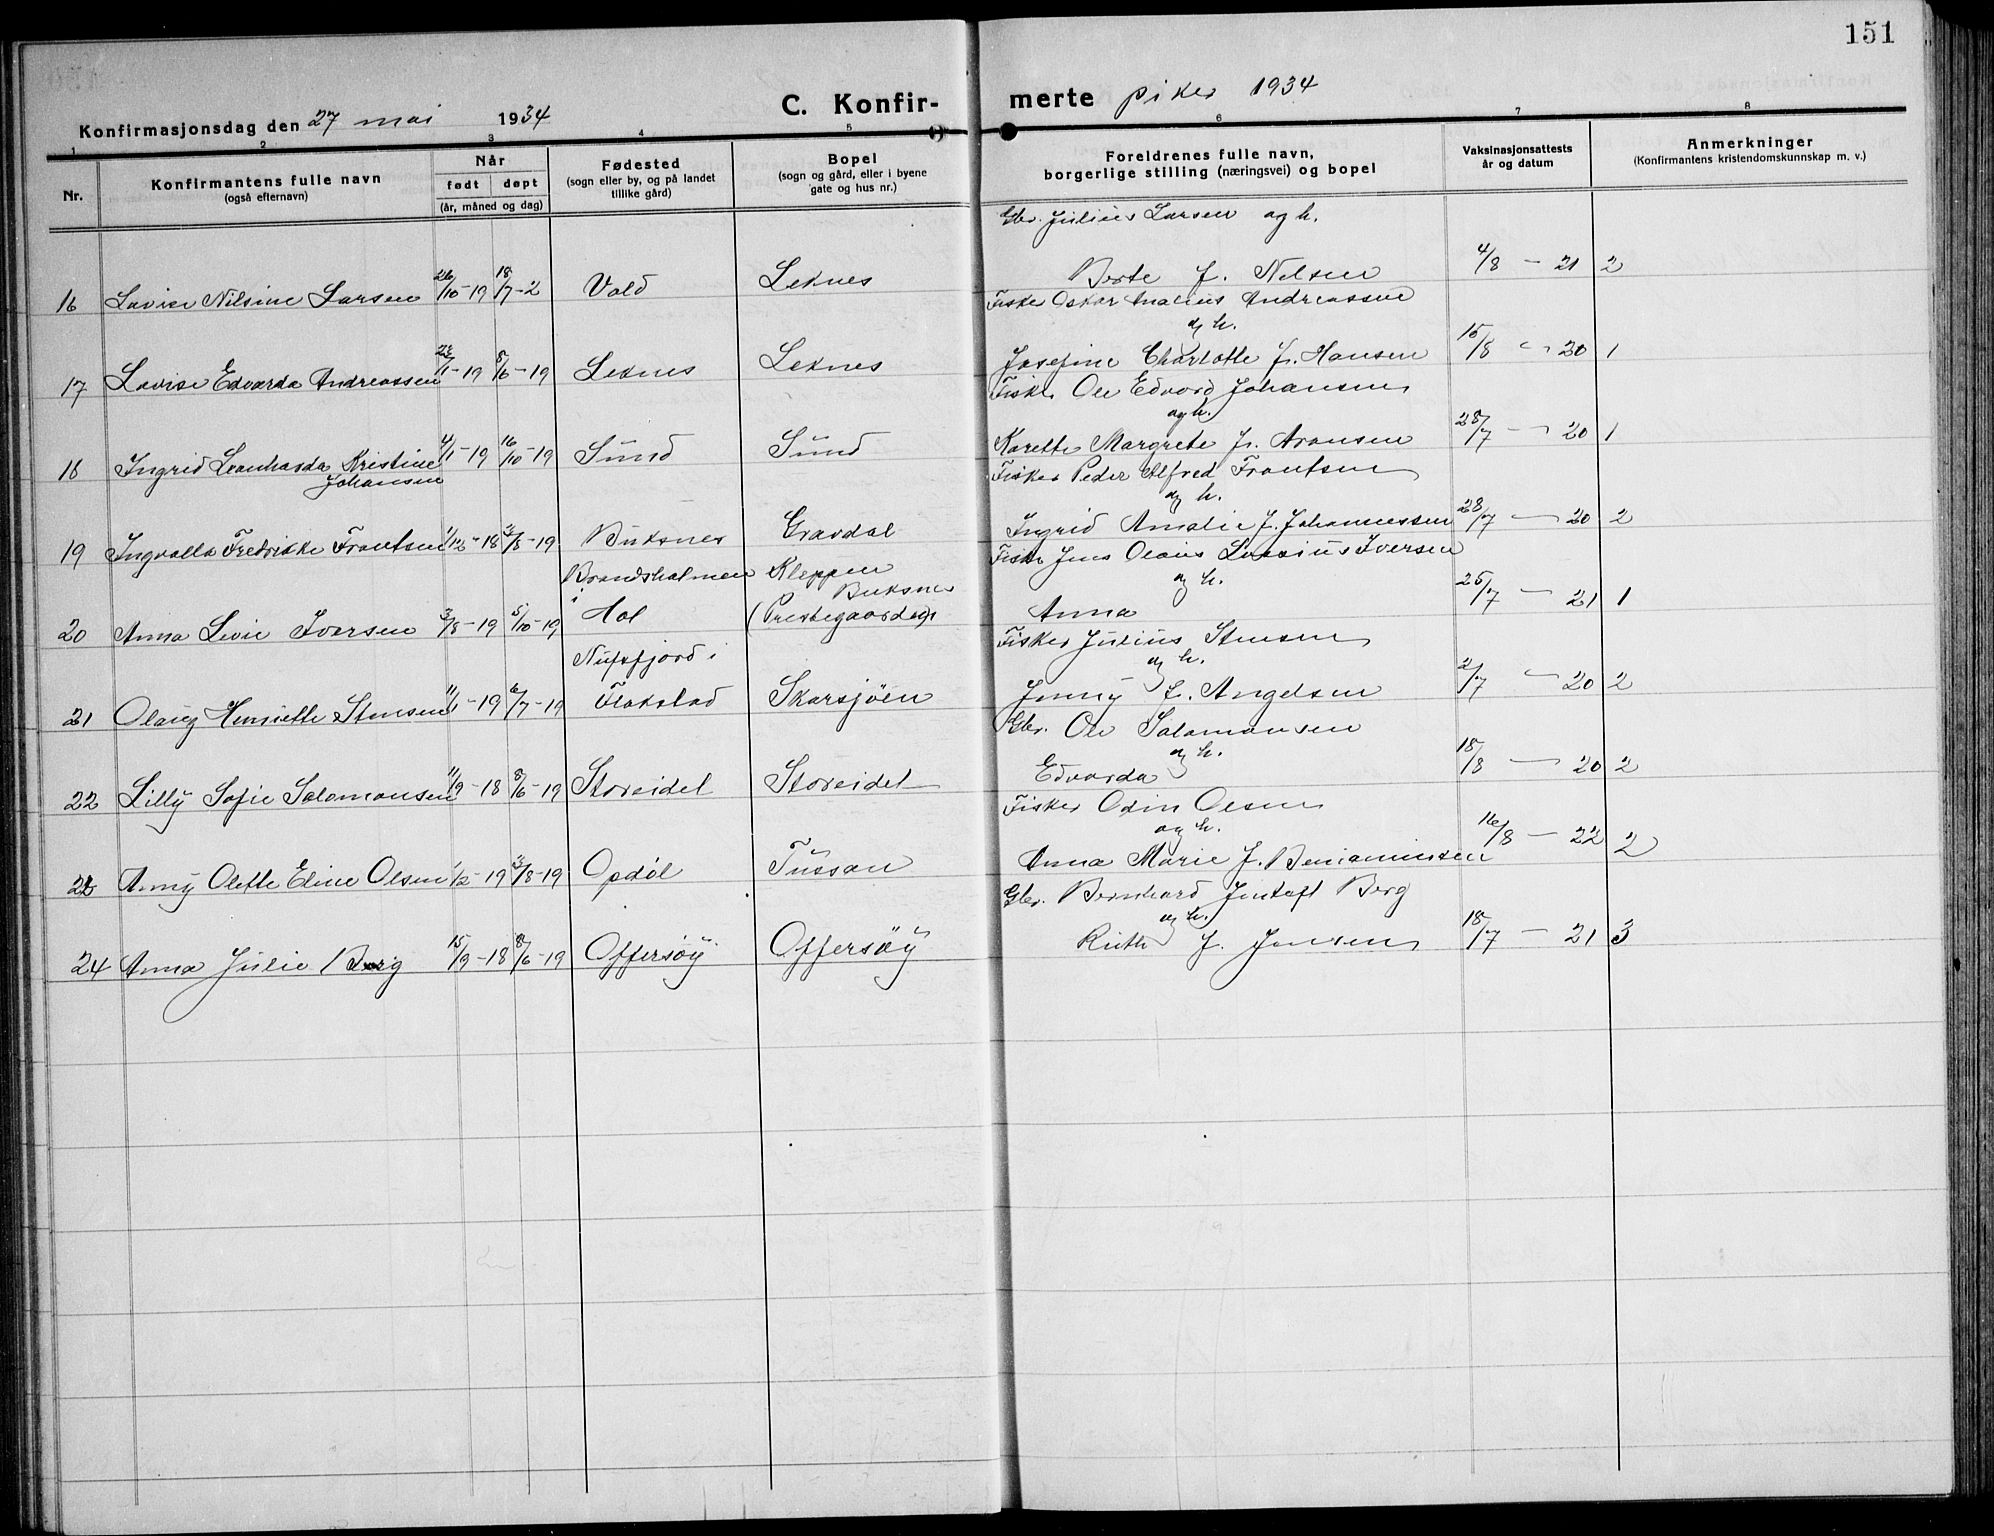 151
Konfirmasjonsdag den 27 mai 1934
C. Konfir-
merte piker 1934
1 2 3 4 5 6 7 8
Nr.
Konfirmantens fulle navn
(også efternavn)
Når
født døpt
(år, måned og dag)
Fødested
(sogn eller by, og på landet
tillike gård)
Bopel
(sogn og gård, eller i byene
gate og hus nr.)
Foreldrenes fulle navn,
borgerlige stilling (næringsvei) og bopel
Vaksinasjonsattests
år og datum
Anmerkninger
(Konfirmantens kristendomskunnskap m. v.)
Gbr. Julius Larsen og h.
16 Lovise Nilsine Larsen 26/10-19 18/7-2 Vold Leknes Berte f. Nilsen 4/8 - 21 2
Fisker Oskar Analius Andreassen
og h.
17 Lovise Edvarda Andreassen /1-19 8/6-19 Leknes Leknes Josefine Charlotte f. Hansen 15/8 - 20 1
Fisker Ole Edvard Johansen
og h.
18 Ingrid Leonharda Kristine 4/1-19 16/10-19 Sund Sund Karette Margrete f. Aronsen 28/7 - 20 1
Johansen
Fisker Peder Alfred Frantsen
og h.
19 Ingvalla Fredrikke Frantsen 1/12-18 3/8-19 Buksnes Gravdal Ingrid Amalie f. Johannessen 28/7 - 20 2
Fisker Jens Olaus Iversen
og h.
Brandsholmen Kleppen
i Buksnes
20 Anna Levie Iversen 3/8-19 5/10-19 Hol (Prestegaarden) Anna 25/7 - 21 1
Fisker Julius Stensen
og h.
Nufsfjord i
21 Olaug Henriette Stensen 11/1-19 6/7-19 Flakstad Skarsjöen Jenny f. Angelsen 2/7 - 20 2
Gbr. Ole Salomonsen
og h.
22 Lilly Sofie Salomonsen 11/9-18 8/6-19 Storeidet Storeidet Edvarda 18/8 - 20 2
Fisker Odin Olsen
og h.
Anny Olette Eline Olsen 1/2-19 3/8-19 Opdøl Tussan Anna Marie f. Beniaminsen 16/8 - 22 2
Gbr. Bernhard Jentoft Berg
og h.
24 Anna Julie Berg 15/9-18 8/6-19 Offersøy Offersøy Ruth f. Jensen 18/7 - 21 3